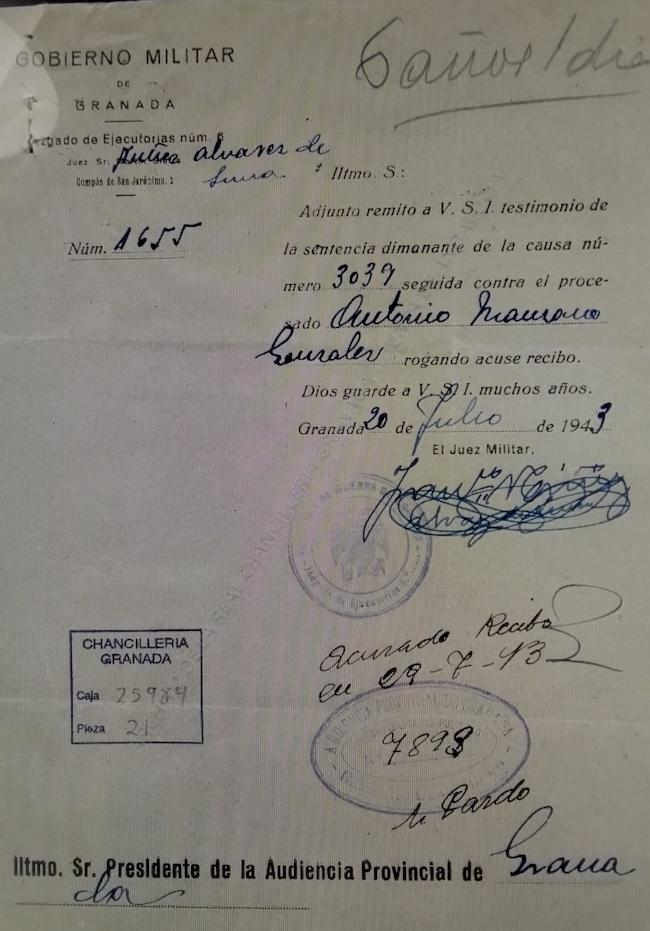 6 años 1 dia
GOBIERNO MILITAR
DE
GRANADA
Juzgado de Ejecutorias núm. 6
Juez Sr.
alvarez de
Compás de San Jerónimo, 2
Núm. 1655
Iltmo. S.:
Adjunto remito a V. S. I. testimonio de
la sentencia dimanante de la causa nú-
mero 3039 seguida contra el proce-
sado Antonio Manzano
Gonzalez rogando acuse recibo.
Dios guarde a V. S. I. muchos años.
Granada 20 de Julio de 1943
El Juez Militar,
de Ejecutorias
CHANCILLERIA
GRANADA
Caja 25984
Pieza 21
Acusado Recibo
en 29-7-43
AUDIENCIA PROVINCIAL DE GRANADA
7893
Pardo
Iltmo. Sr. Presidente de la Audiencia Provincial de Grana
da